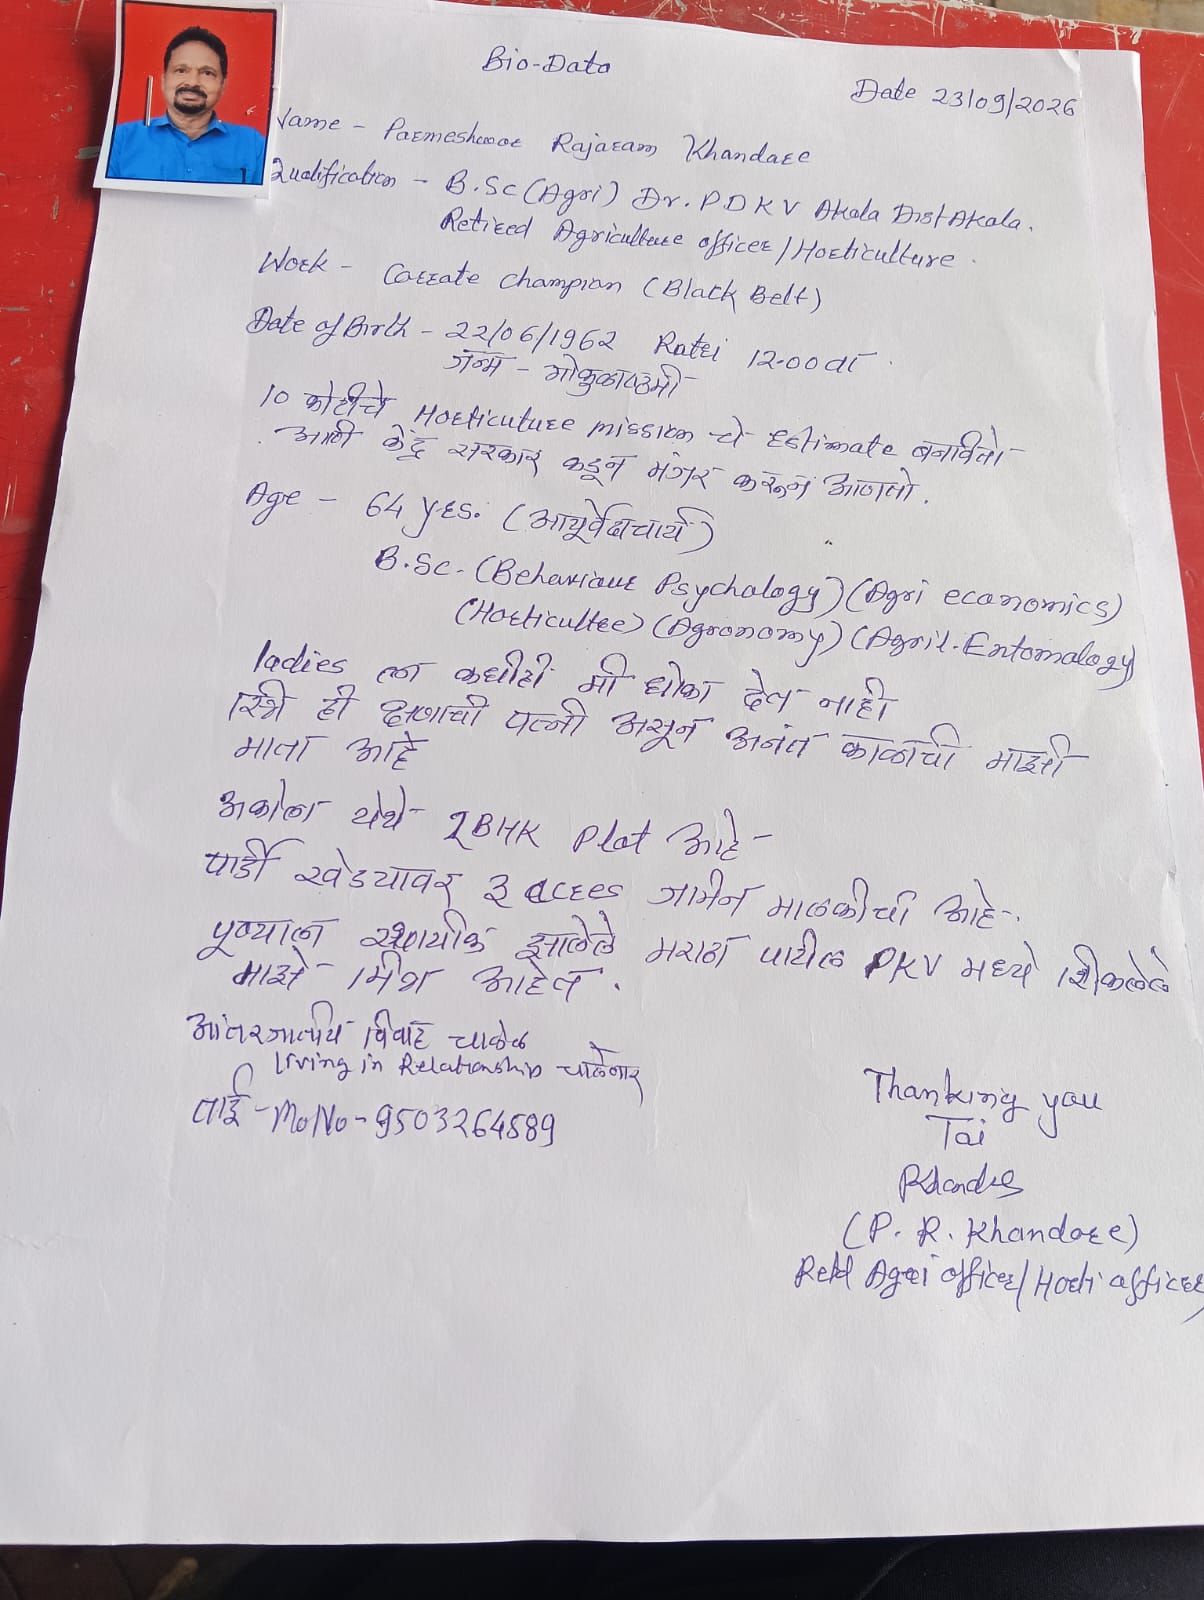 Bio-Data
Date 23/09/2026
Name - Parmeshwar Rajaram Khandare
Qualification - B.Sc (Agri) Dr. P.D.K V Akola Dist Akola.
Retired Agriculture officer / Horticulture.
Work - Carrate champion (Black Belt)
Date of Birth - 22/06/1962 Ratri 12.00 वा.
जन्म - गोकुळाष्टमी
10 कोटीचे Horticuture mission चे Estimate बनवितो
आणी केंद्र सरकार कडून मंजूर करून आणतो.
Age - 64 yrs. (आयुर्वेदाचार्य)
B.Sc. (Behaviour Psychology) (Agri economics)
(Horticultre) (Agronomy) (Agril. Entomology)
ladies ला कधीही मी धोका देत नाही
स्त्रि ही क्षणाची पत्नी असून अनंत काळाची माझी
माता आहे
अकोला येथे 2BHK Plot आहे
पार्डी खेड्यावर 3 acres जमिन मालकीची आहे.
पूण्याला स्थायीक झालेले मराठा पाटील PKV मध्ये शिकलेले
माझे मित्र आहेत.
आंतरजातीय विवाह चालेल
living in Relationship चालेणार
ताई - Mo No - 9503264589
Thanking you
Tai
Khandre
(P. R. Khandare)
Retd Agri officer / Horti officer